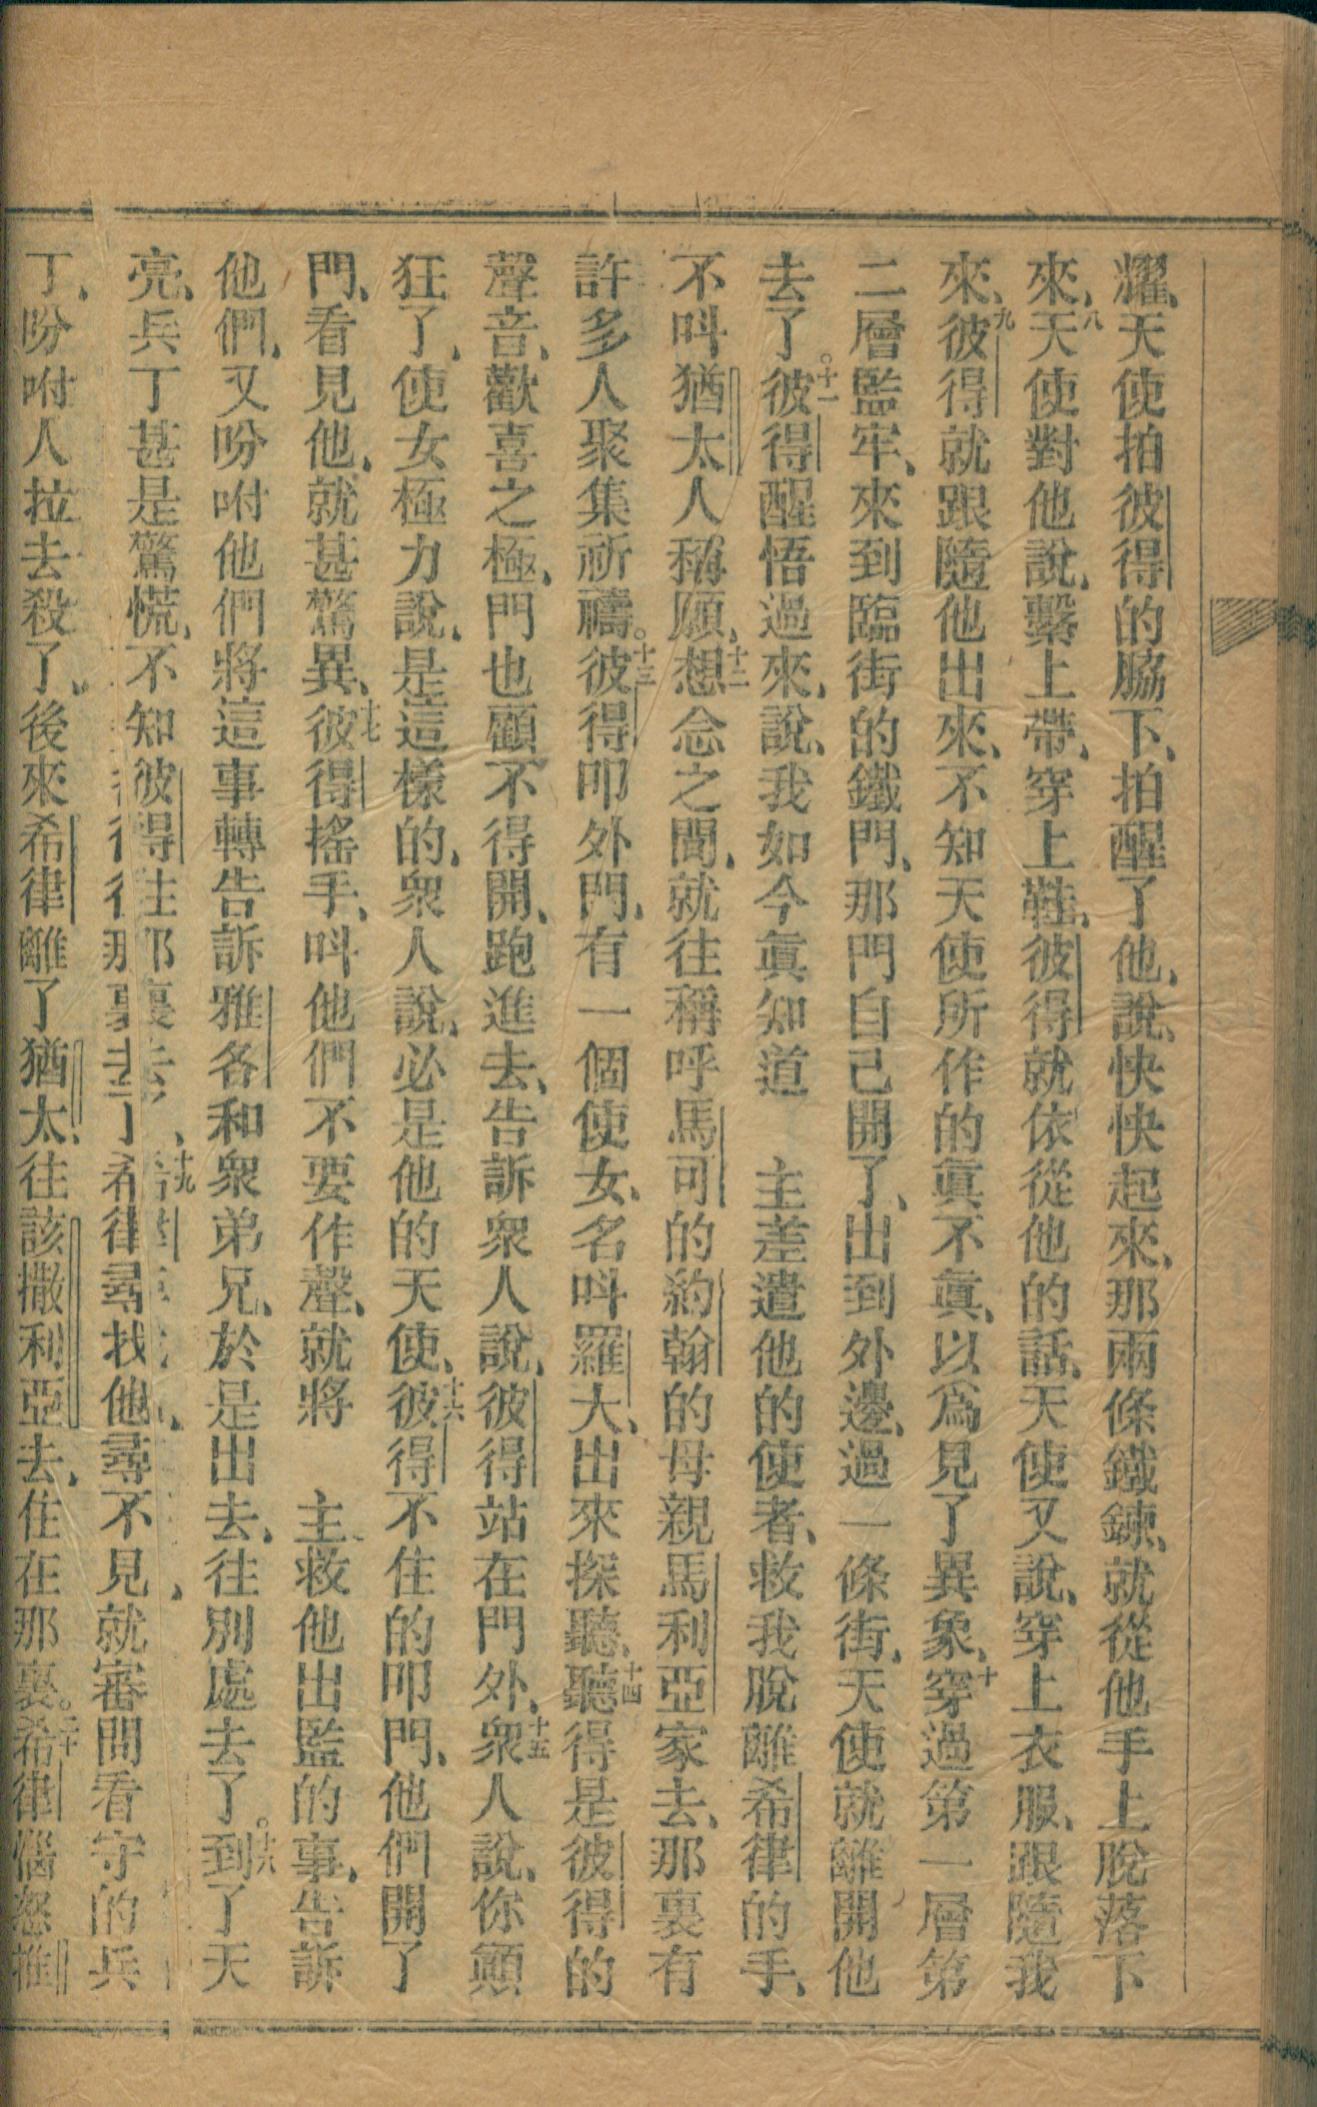 耀、天使拍彼得的脇下、拍醒了他、說、快快起來、那兩條鐵鍊、就從他手上脫落下
來、八天使對他說、繫上帶、穿上鞋、彼得就依從他的話、天使又說、穿上衣服、跟隨我
來、九彼得就跟隨他出來、不知天使所作的眞不眞、以爲見了異象、十穿過第一層第
二層監牢、來到臨街的鐵門、那門自己開了、出到外邊、過一條街、天使就離開他
去了。十一彼得醒悟過來、說、我如今眞知道　主差遣他的使者、救我脫離希律的手、
不呌猶太人稱願、十二想念之間、就往稱呼馬可的約翰的母親馬利亞家去、那裏有
許多人聚集祈禱。十三彼得叩外門、有一個使女、名呌羅大、出來探聽、十四聽得是彼得的
聲音、歡喜之極、門也顧不得開、跑進去、告訴衆人說、彼得站在門外、十五衆人說、你顚
狂了、使女極力說、是這樣的、衆人說、必是他的天使、十六彼得不住的叩門、他們開了
門、看見他、就甚驚異、十七彼得搖手、呌他們不要作聲、就將　主救他出監的事、告訴
他們、又吩咐他們將這事轉告訴雅各和衆弟兄、於是出去、往別處去了。十八到了天
亮、兵丁甚是驚慌、不知彼得往那裏去了、十九希律尋找他、尋不見、就審問看守的兵
丁、吩咐人拉去殺了、後來希律離了猶太、往該撒利亞去、住在那裏。二十希律惱怒推